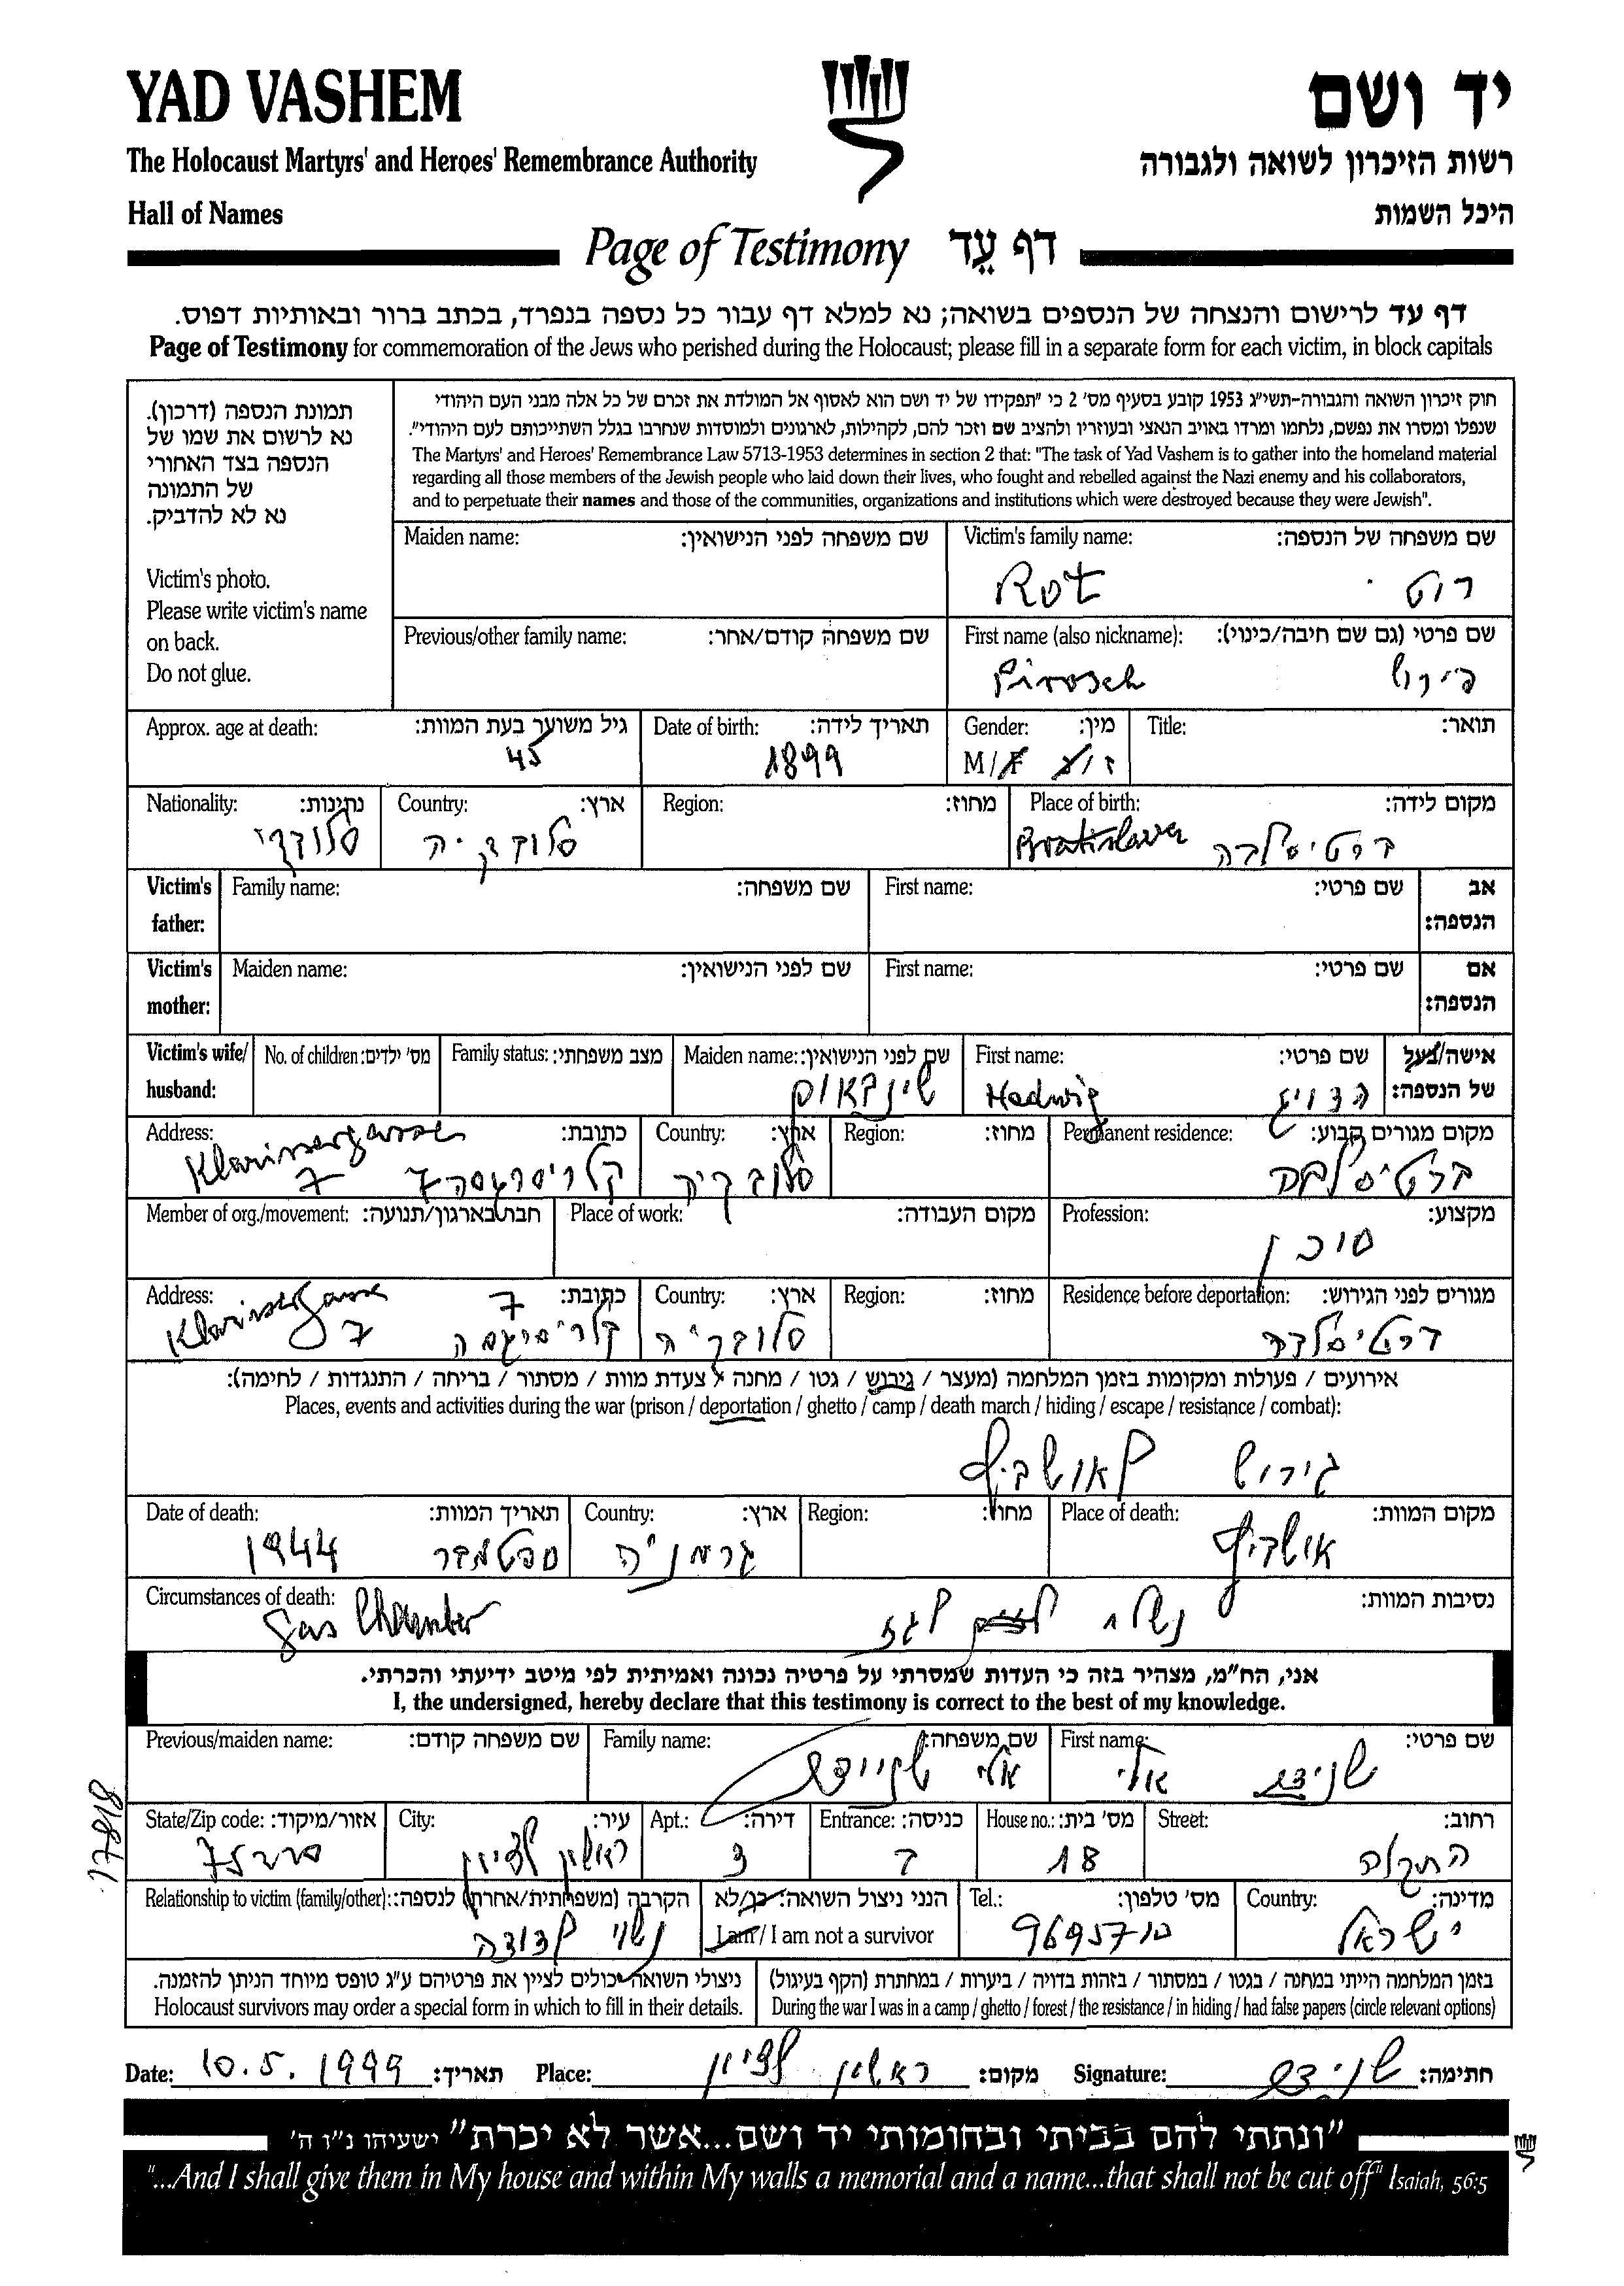 YAD VASHEM
יד ושם
The Holocaust Martyrs' and Heroes' Remembrance Authority
רשות הזיכרון לשואה ולגבורה
Hall of Names
היכל השמות
Page of Testimony דף עֵד
דף עד לרישום והנצחה של הנספים בשואה; נא למלא דף עבור כל נספה בנפרד, בכתב ברור ובאותיות דפוס.
Page of Testimony for commemoration of the Jews who perished during the Holocaust; please fill in a separate form for each victim, in block capitals
תמונת הנספה (דרכון).
נא לרשום את שמו של
הנספה בצד האחורי
של התמונה
נא לא להדביק.
Victim's photo.
Please write victim's name
on back.
Do not glue.
חוק זיכרון השואה והגבורה-תשי"ג 1953 קובע בסעיף מס' 2 כי "תפקידו של יד ושם הוא לאסוף אל המולדת את זכרם של כל אלה מבני העם היהודי
שנפלו ומסרו את נפשם, נלחמו ומרדו באויב הנאצי ובעוזריו ולהציב שם וזכר להם, לקהילות, לארגונים ולמוסדות שנחרבו בגלל השתייכותם לעם היהודי".
The Martyrs' and Heroes' Remembrance Law 5713-1953 determines in section 2 that: "The task of Yad Vashem is to gather into the homeland material
regarding all those members of the Jewish people who laid down their lives, who fought and rebelled against the Nazi enemy and his collaborators,
and to perpetuate their names and those of the communities, organizations and institutions which were destroyed because they were Jewish".
Maiden name: שם משפחה לפני הנישואין:
Victim's family name: שם משפחה של הנספה:
Rot רוט
Previous/other family name: שם משפחה קודם/אחר:
First name (also nickname): שם פרטי (גם שם חיבה/כינוי):
Pirosch פירוש
Approx. age at death: גיל משוער בעת המוות:
45
Date of birth: תאריך לידה:
1899
Gender: מין:
M/F ז/נ
Title: תואר:
Nationality: נתינות:
סלובקי
Country: ארץ:
סלובקיה
Region: מחוז:
Place of birth: מקום לידה:
Bratislava ברטיסלבה
Victim's father: Family name: שם משפחה: First name: שם פרטי: אב הנספה:
Victim's mother: Maiden name: שם לפני הנישואין: First name: שם פרטי: אם הנספה:
Victim's wife/husband: No. of children: מס' ילדים: Family status: מצב משפחתי: Maiden name: שם לפני הנישואין: First name: שם פרטי: אישה/בעל של הנספה:
שינבאום Hedwig הדויג
Address: כתובת: Country: ארץ: Region: מחוז: Permanent residence: מקום מגורים קבוע:
Klarissergasse 7 קלריסרגסה 7 סלובקיה ברטיסלבה
Member of org./movement: חבר בארגון/תנועה: Place of work: מקום העבודה: Profession: מקצוע:
סוכן
Address: כתובת: Country: ארץ: Region: מחוז: Residence before deportation: מגורים לפני הגירוש:
Klarissergasse 7 קלריסיגסה 7 סלובקיה ברטיסלבה
אירועים / פעולות ומקומות בזמן המלחמה (מעצר / גירוש / גטו / מחנה / צעדת מוות / מסתור / בריחה / התנגדות / לחימה):
Places, events and activities during the war (prison / deportation / ghetto / camp / death march / hiding / escape / resistance / combat):
גירוש לאושביץ
Date of death: תאריך המוות: Country: ארץ: Region: מחוז: Place of death: מקום המוות:
1944 ספטמבר גרמניה אושביץ
Circumstances of death: נסיבות המוות:
Gas Chamber נשלח לגז
אני, הח"מ, מצהיר בזה כי העדות שמסרתי על פרטיה נכונה ואמיתית לפי מיטב ידיעתי והכרתי.
I, the undersigned, hereby declare that this testimony is correct to the best of my knowledge.
Previous/maiden name: שם משפחה קודם: Family name: שם משפחה: First name: שם פרטי:
אלי שניידר אלי
17818
State/Zip code: אזור/מיקוד: City: עיר: Apt.: דירה: Entrance: כניסה: House no.: מס' בית: Street: רחוב:
ראשון לציון 3 18
Relationship to victim (family/other): הקרבה (משפחתית/אחרת) לנספה: הנני ניצול השואה: כן/לא I am / I am not a survivor Tel.: מס' טלפון: Country: מדינה:
נשוי ישראל
ניצולי השואה יכולים לציין את פרטיהם ע"ג טופס מיוחד הניתן להזמנה.
Holocaust survivors may order a special form in which to fill in their details.
בזמן המלחמה הייתי במחנה / בגטו / במסתור / בזהות בדויה / ביערות / במחתרת (הקף בעיגול)
During the war I was in a camp / ghetto / forest / the resistance / in hiding / had false papers (circle relevant options)
Date: 10.5.1999 תאריך: Place: ראשון לציון מקום: Signature: חתימה:
"ונתתי להם בביתי ובחומותי יד ושם...אשר לא יכרת" ישעיהו נ"ו ה'
"...And I shall give them in My house and within My walls a memorial and a name...that shall not be cut off" Isaiah, 56:5